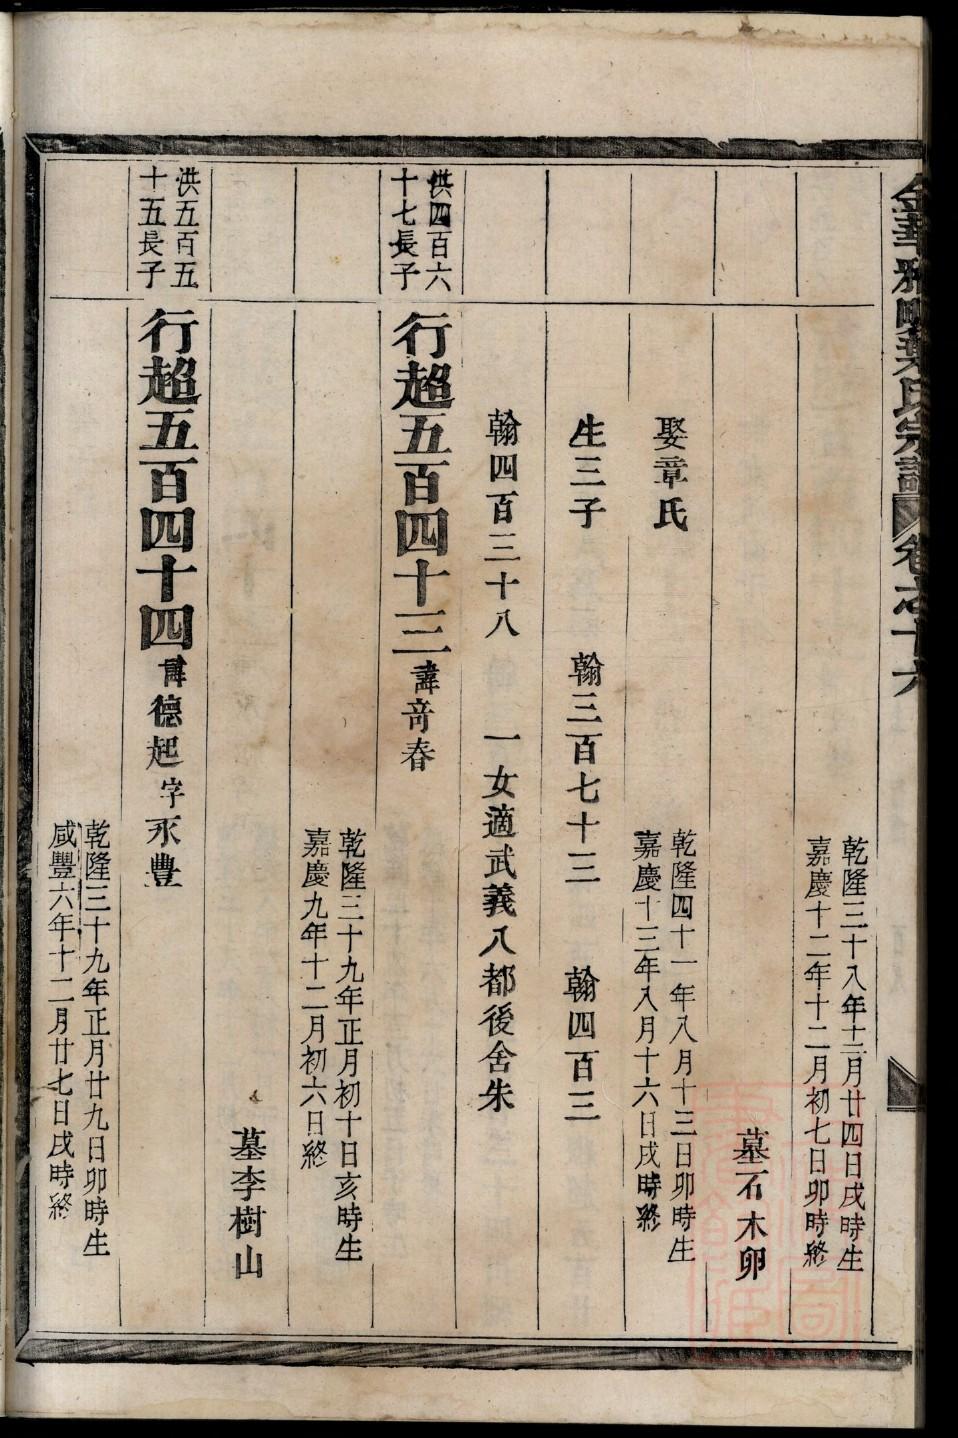 金華雅畈葉氏宗譜 卷之十六
乾隆三十八年十二月廿四日戌時生
嘉慶十二年十二月初七日卯時終
墓石木卵
娶章氏
乾隆四十一年八月十三日卯時生
嘉慶十三年八月十六日戌時終
生三子 翰三百七十三 翰四百三
翰四百三十八 一女適武義八都後舍朱
洪四百六
十七長子
行超五百四十三 諱奇春
乾隆三十九年正月初十日亥時生
嘉慶九年十二月初六日終
墓李樹山
洪五百五
十五長子
行超五百四十四 諱德起字永豐
乾隆三十九年正月廿九日卯時生
咸豐六年十二月廿七日戌時終